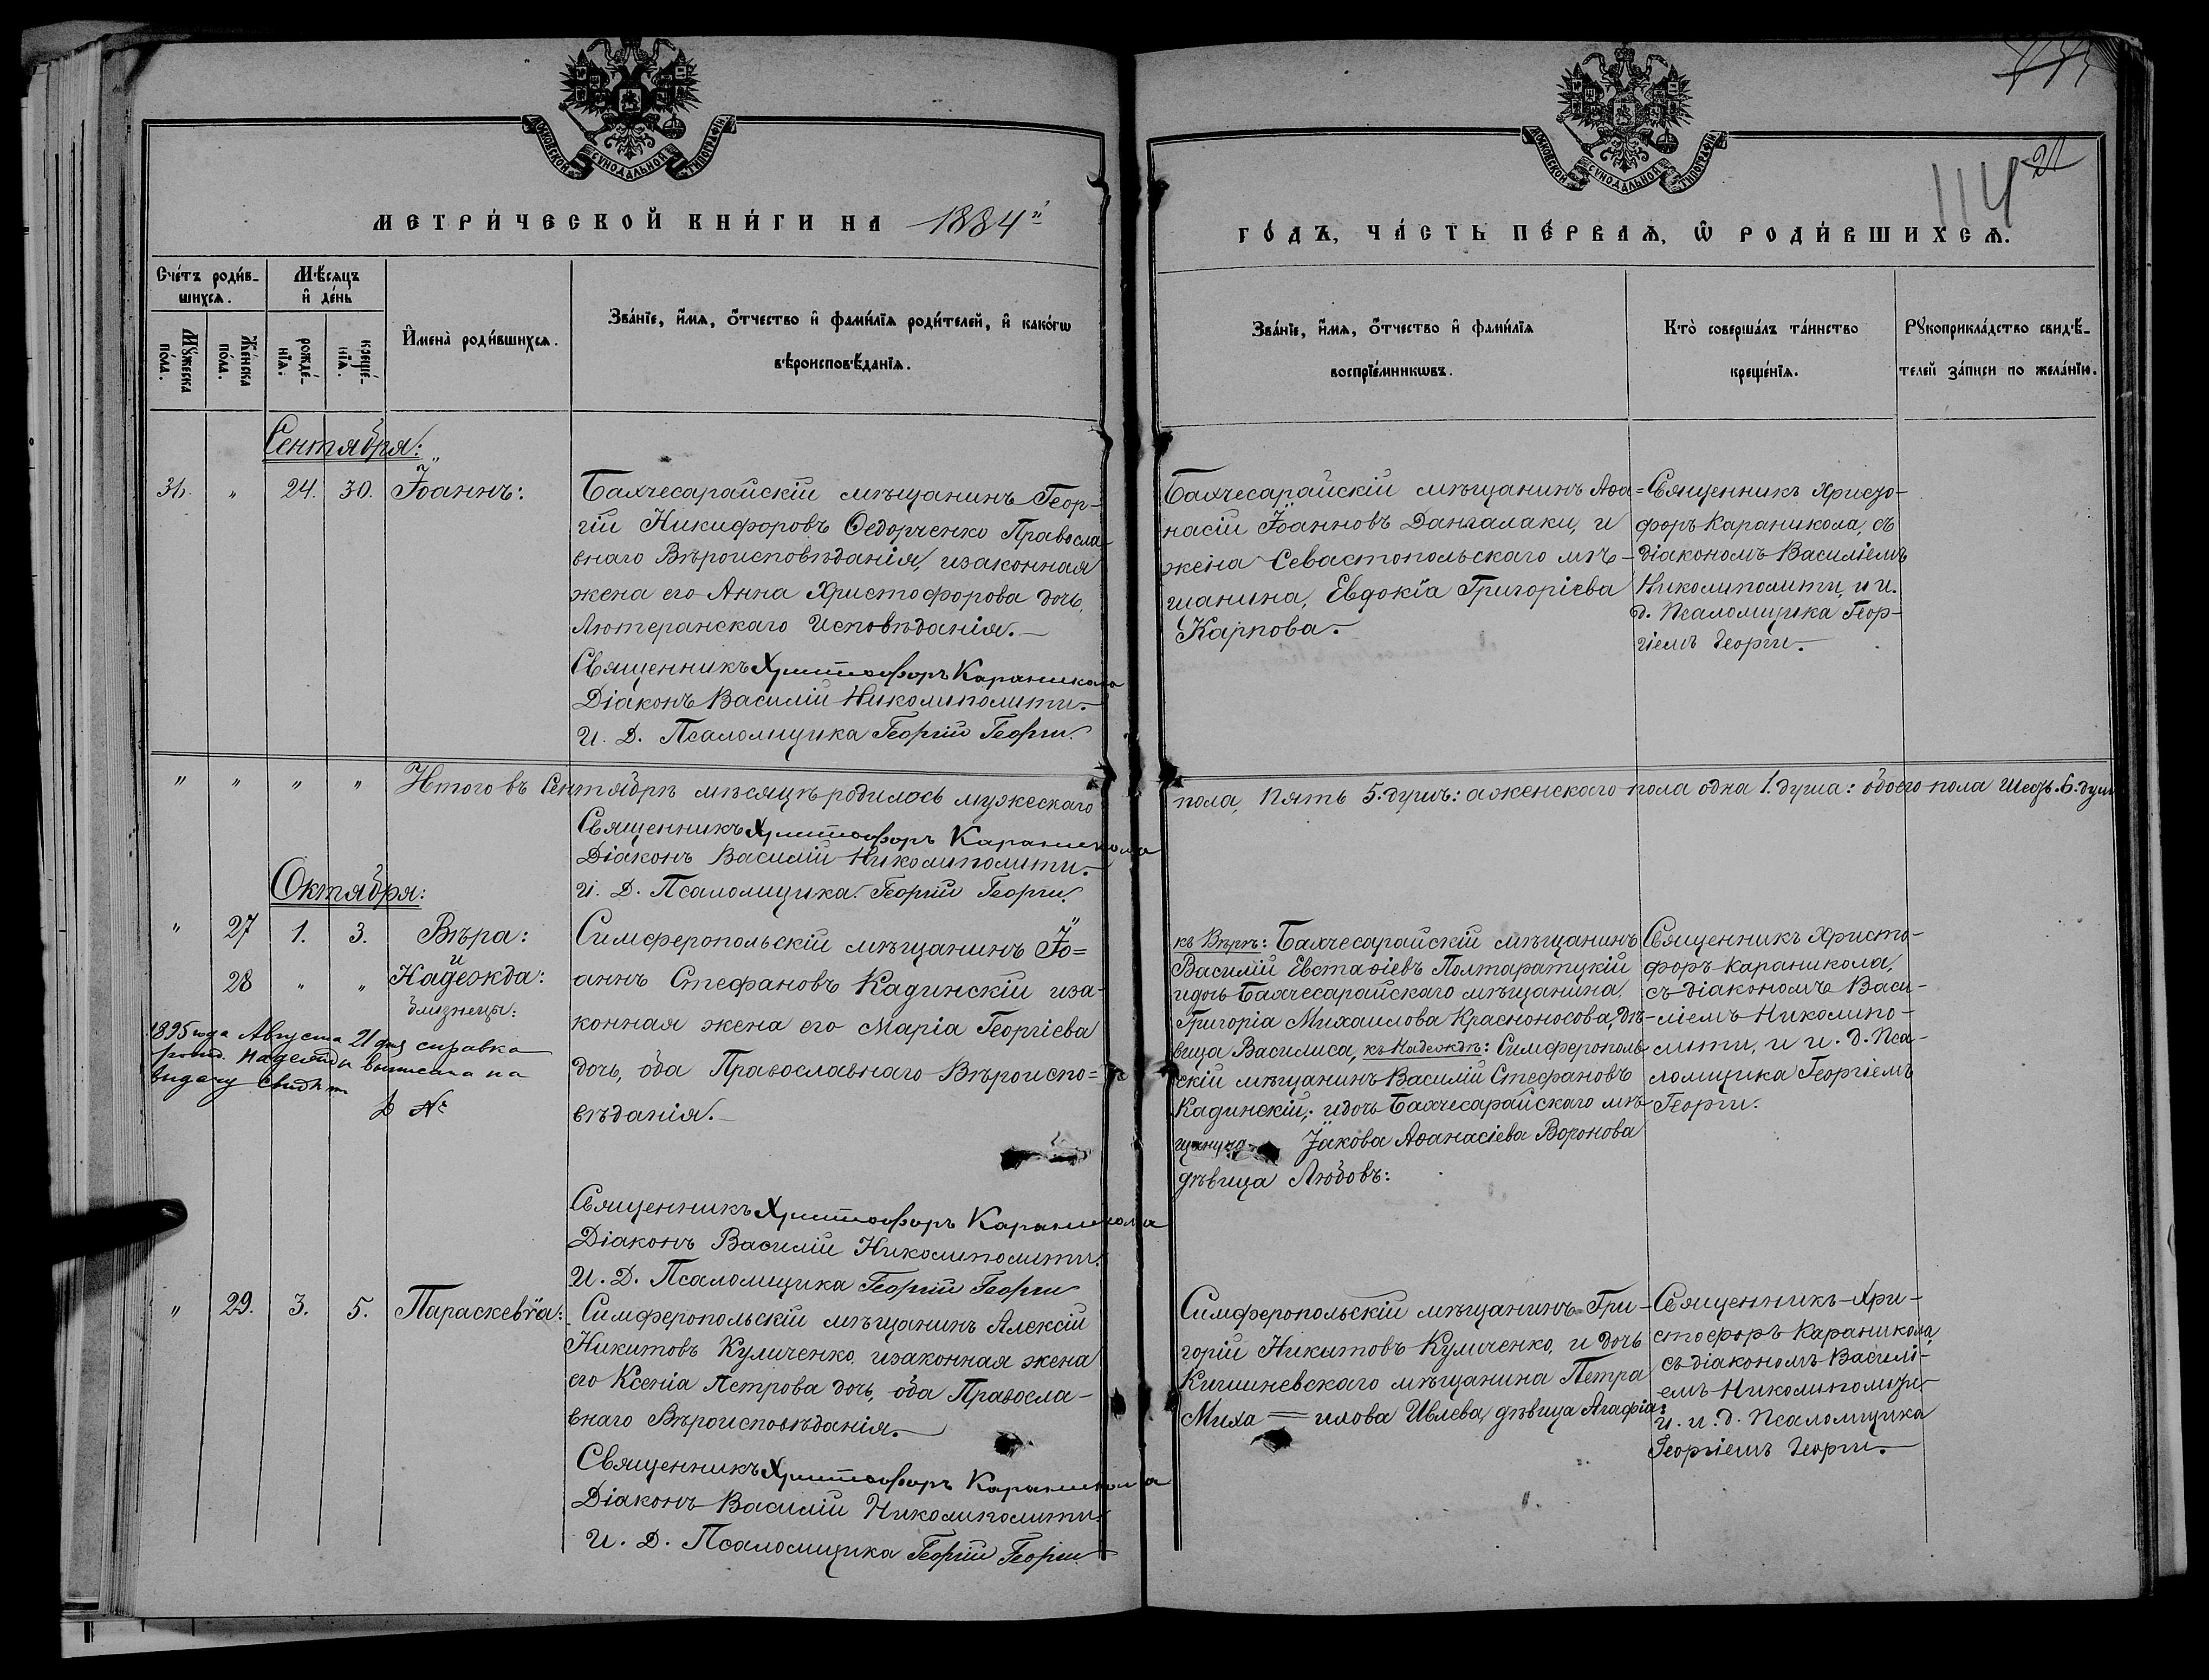 МОСКОВСКОЙ СѴНОДАЛЬНОЙ ТИПОГРАФІИ
МЕТРИ́ЧЕСКОЙ КНИ́ГИ НА 1884й
Сче́тъ роди́в-
шихсѧ.
Мѣ́сѧцъ
и҆ де́нь
Мꙋ́жеска
по́ла.
Же́нска
по́ла.
рожде́-
нїѧ.
креще́-
нїѧ.
И҆мена̀ роди́вшихсѧ.
Зва́нїе, и҆́мѧ, ѻ҆́тчество и҆ фами́лїѧ роди́телей, и҆ како́гѡ
вѣроисповѣ́данїѧ.
Сентября:
31. " 24. 30. Іоаннъ:
Бахчесарайскій мѣщанинъ Геор-
гій Никифоровъ Ѳедорченко Правосла-
внаго Вѣроисповѣданія, изаконная
жена его Анна Христофорова дочь,
Лютеранскаго Исповѣданія.
Священникъ Христофоръ Караникола
Діаконъ Василій Николиполити.
И. Д. Псаломщика Георгій Георги.
" " " " Итого въ Сентябрѣ мѣсяцѣ родилось мужескаго
Священникъ Христофоръ Караникола
Діаконъ Василій Николиполити.
И. Д. Псаломщика Георгій Георги.
Октября:
" 27 1. 3. Вѣра:
и
28 " " Надежда:
близнецы:
Симферопольскій мѣщанинъ Іо=
аннъ Стефановъ Кадинскій иза-
конная жена его Марія Георгіева
дочь, оба Православнаго Вѣроиспо=
вѣданія.
1895 года Августа 21 дня справка
Надежды выписана на
выдачу свидѣт
№
Священникъ Христофоръ Караникола
Діаконъ Василій Николиполити.
И. Д. Псаломщика Георгій Георги
" 29. 3. 5. Параскевїа:
Симферопольскій мѣщанинъ Алексій
Никитовъ Куличенко, изаконная жена
его Ксенія Петрова дочь, оба Правосла-
внаго Вѣроисповѣданія.
Священникъ Христофоръ Караникола
Діаконъ Василій Николиполити
И. Д. Псаломщика Георгій Георги
МОСКОВСКОЙ СѴНОДАЛЬНОЙ ТИПОГРАФІИ
21
114
ГО́ДЪ, ЧА́СТЬ ПЕ́РВАѦ, Ѡ҆ РОДИ́ВШИХСѦ.
Зва́нїе, и҆́мѧ, ѻ҆́тчество и҆ фами́лїѧ
воспрїе́мникѡвъ.
Кто̀ соверша́лъ та́инство
креще́нїѧ.
Рꙋкоприкла́дство свидѣ́-
телей за́писи по жела́нїю.
Бахчесарайскій мѣщанинъ Аѳа=
насій Іоанновъ Дангалаки, и
жена Севастопольскаго мѣ-
щанина, Евдокїа Григоріева
Карпова.
Священникъ Христо-
форъ Караникола, съ
діакономъ Василіемъ
Николиполити, и и.
д. Псаломщика Геор-
гіемъ Георги.
пола, Пять 5. душъ: а женскаго пола одна 1. душа: обоего пола Шесть. 6. душъ
къ Вѣрѣ: Бахчесарайскій мѣщанинъ
Василій Евстаѳіевъ Полтаратцкій
идочь Бахчесарайскаго мѣщанина,
Григоріа Михаилова Красноносова, дѣ-
вица Василиса, къ Надеждѣ: Симферополь-
скій мѣщанинъ Василій Стефановъ
Кадинскій; идочь Бахчесарайскаго мѣ-
щанина Іакова Аѳанасіева Воронова
дѣвица Любовъ:
Священникъ Христо-
форъ Караникола,
съ діакономъ Васи-
ліемъ Николипо-
лити, и и. д. Пса-
ломщика Георгіемъ
Георги.
Симферопольскій мѣщанинъ Гри-
горій Никитовъ Куличенко, и дочь
Кишиневскаго мѣщанина Петра
Миха = илова Ивлева, дѣвица Агафіа:
Священникъ Хри-
стофоръ Караникола
съ діакономъ Василі-
емъ Николиполити
и. и. д. Псаломщика
Георгіемъ Георги.